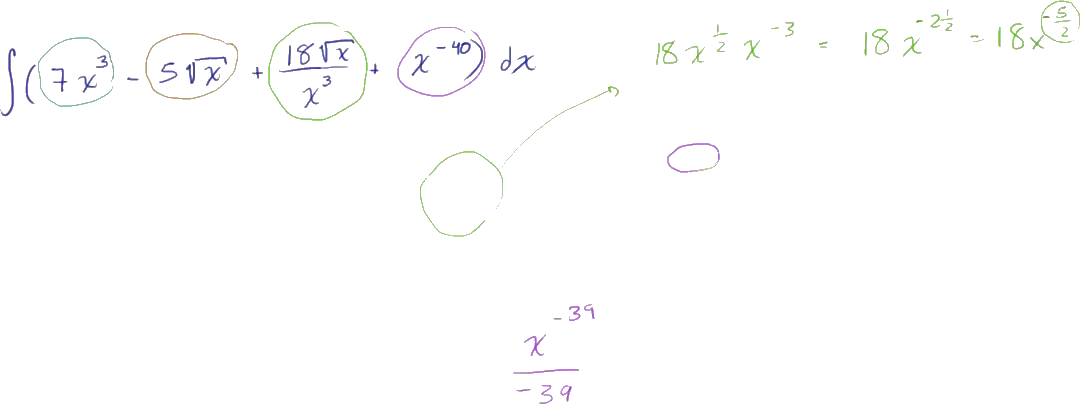 ∫(7x³ - 5√x + 18√x/x³ + x⁻⁴⁰) dx
18x^{1/2} x^{-3} = 18x^{-2 1/2} = 18x^{-5/2}
x^{-39}/-39